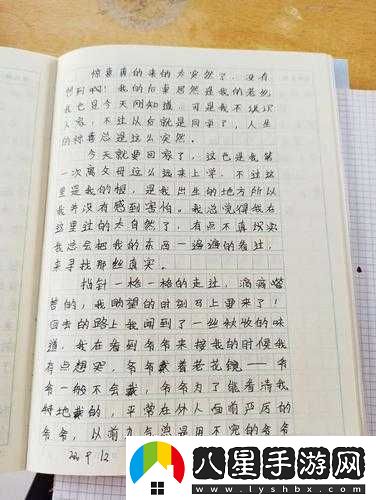 惊喜真的来的太突然了，没有
想到啊！我的后桌居然是我的老总
我也是今天刚知道，可是我不认识
人家，不过从后就是同学了，人生
的惊喜总是这么突然。
今天就要回家了，这也是我第
一次离父母这么远来上学，不过这
里是我的根，是我出生的地方所以
我并没有感到害怕。我总觉得我在
这里过的太自然了，有点不真实
我总会把我的东西一遍遍的看过，
来寻找那丝真实。
指针一格一格的走过，滴滴嗒
嗒的，我盼望的时刻马上要来了！
回去的路上我闻到了一丝秋收的味
道，我在看到爷爷来接我的时候我
有点想哭，爷爷戴着老花镜——爷
爷一般不会戴，爷爷为了能看清我
特地戴的，平常在外人面前严厉的
爷爷，以前力气总是用不完的爷爷
八星手游网
www.lyshbx.com